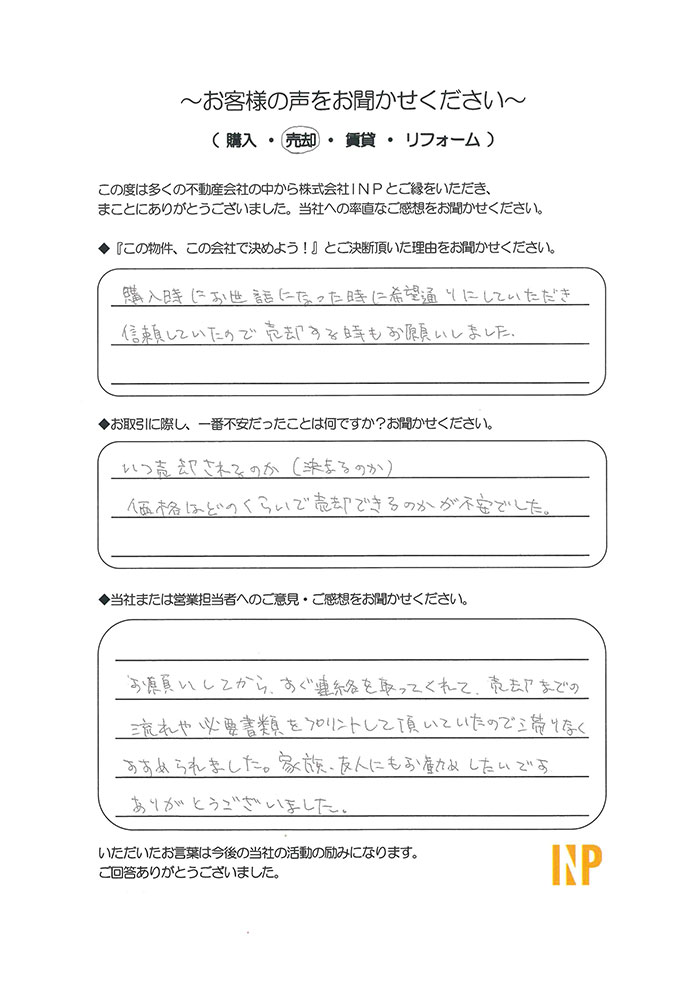 ～お客様の声をお聞かせください～
（ 購入 ・ 売却 ・ 賃貸 ・ リフォーム ）
この度は多くの不動産会社の中から株式会社ＩＮＰとご縁をいただき、
まことにありがとうございました。当社への率直なご感想をお聞かせください。
◆『この物件、この会社で決めよう！』とご決断頂いた理由をお聞かせください。
購入時にお世話になった時に希望通りにしていただき
信頼していたので売却する時もお願いしました.
◆お取引に際し、一番不安だったことは何ですか？お聞かせください。
いつ売却されるのか（決まるのか）
価格はどのくらいで売却できるのかが不安でした。
◆当社または営業担当者へのご意見・ご感想をお聞かせください。
お願いしてから、すぐ連絡を取ってくれて、売却までの
流れや必要書類をプリントして頂いていたので滞りなく
すすめられました。家族、友人にもお勧めしたいです
ありがとうございました。
いただいたお言葉は今後の当社の活動の励みになります。
ご回答ありがとうございました。
INP